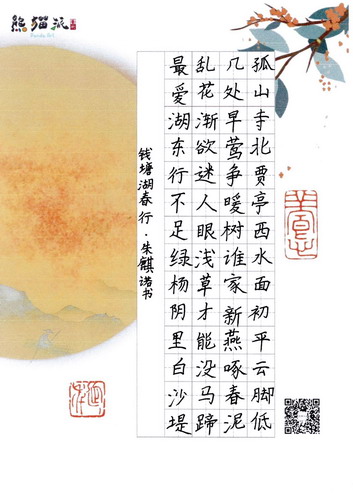 熊猫派
孤山寺北贾亭西水面初平云脚低
几处早莺争暖树谁家新燕啄春泥
乱花渐欲迷人眼浅草才能没马蹄
最爱湖东行不足绿杨阴里白沙堤
钱塘湖春行·朱麒诺书